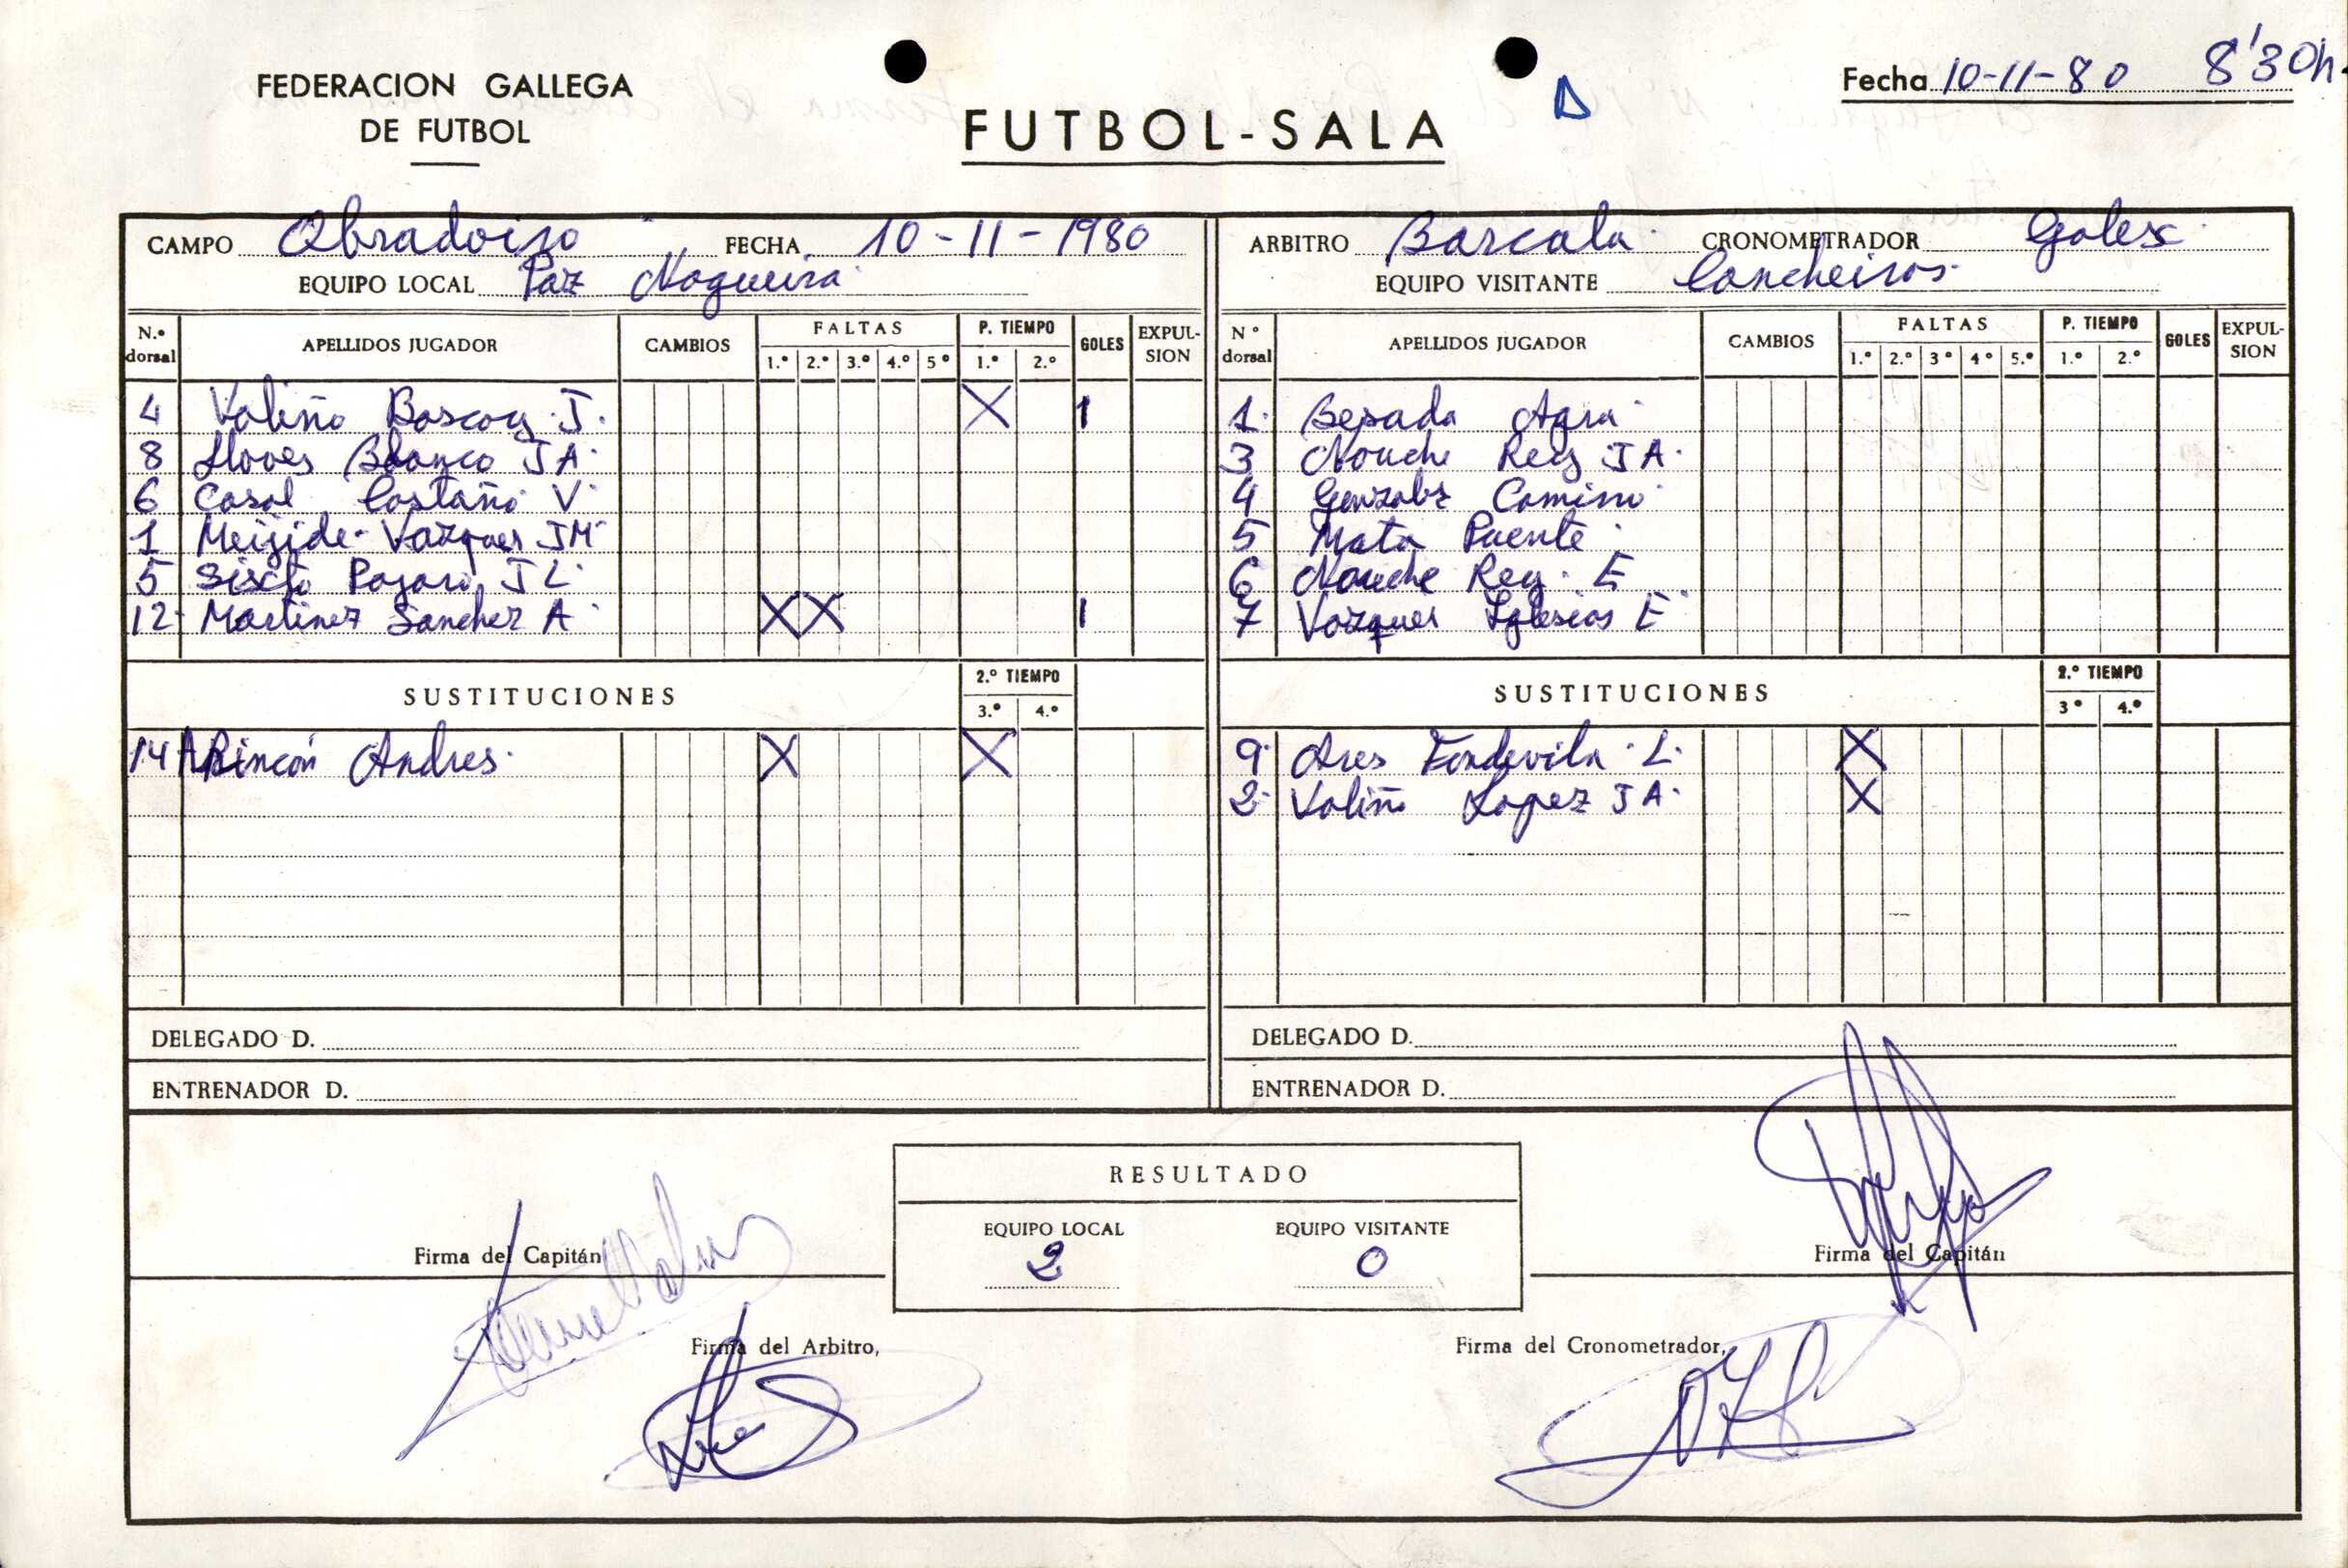 FEDERACION GALLEGA
DE FUTBOL
FUTBOL-SALA
Fecha 10-11-80 8'30h.
CAMPO Obradoiro FECHA 10-11-1980
EQUIPO LOCAL Paz Nogueira
N.º dorsal APELLIDOS JUGADOR CAMBIOS FALTAS 1.º 2.º 3.º 4.º 5º P. TIEMPO 1.º 2.º GOLES EXPUL-SION
4 Valiño Boscoy J. X 1
8 Lloves Blanco J A.
6 Casal Castaño V.
1 Meijide Vazquez JM
5 Sixto Pazara J L.
12 Martinez Sanchez A. X X 1
SUSTITUCIONES 2.º TIEMPO 3.º 4.º
14 Rincón Andres. X X
DELEGADO D.
ENTRENADOR D.
ARBITRO Barcala CRONOMETRADOR Golex
EQUIPO VISITANTE Concheiros
N º dorsal APELLIDOS JUGADOR CAMBIOS FALTAS 1.º 2.º 3º 4º 5.º P. TIEMPO 1.º 2.º GOLES EXPUL-SION
1. Besada Agra
3 Nouche Rey J A.
4 Gonzalez Camino
5 Mata Puente
6 Nouche Rey. E
7 Vazquez Iglesias E
SUSTITUCIONES 2.º TIEMPO 3º 4.º
9. Ares Fondevila L. X
2. Valiño Lopez J A. X
DELEGADO D.
ENTRENADOR D.
RESULTADO
EQUIPO LOCAL EQUIPO VISITANTE
2 0
Firma del Capitán
Firma del Capitán
Firma del Arbitro,
Firma del Cronometrador,